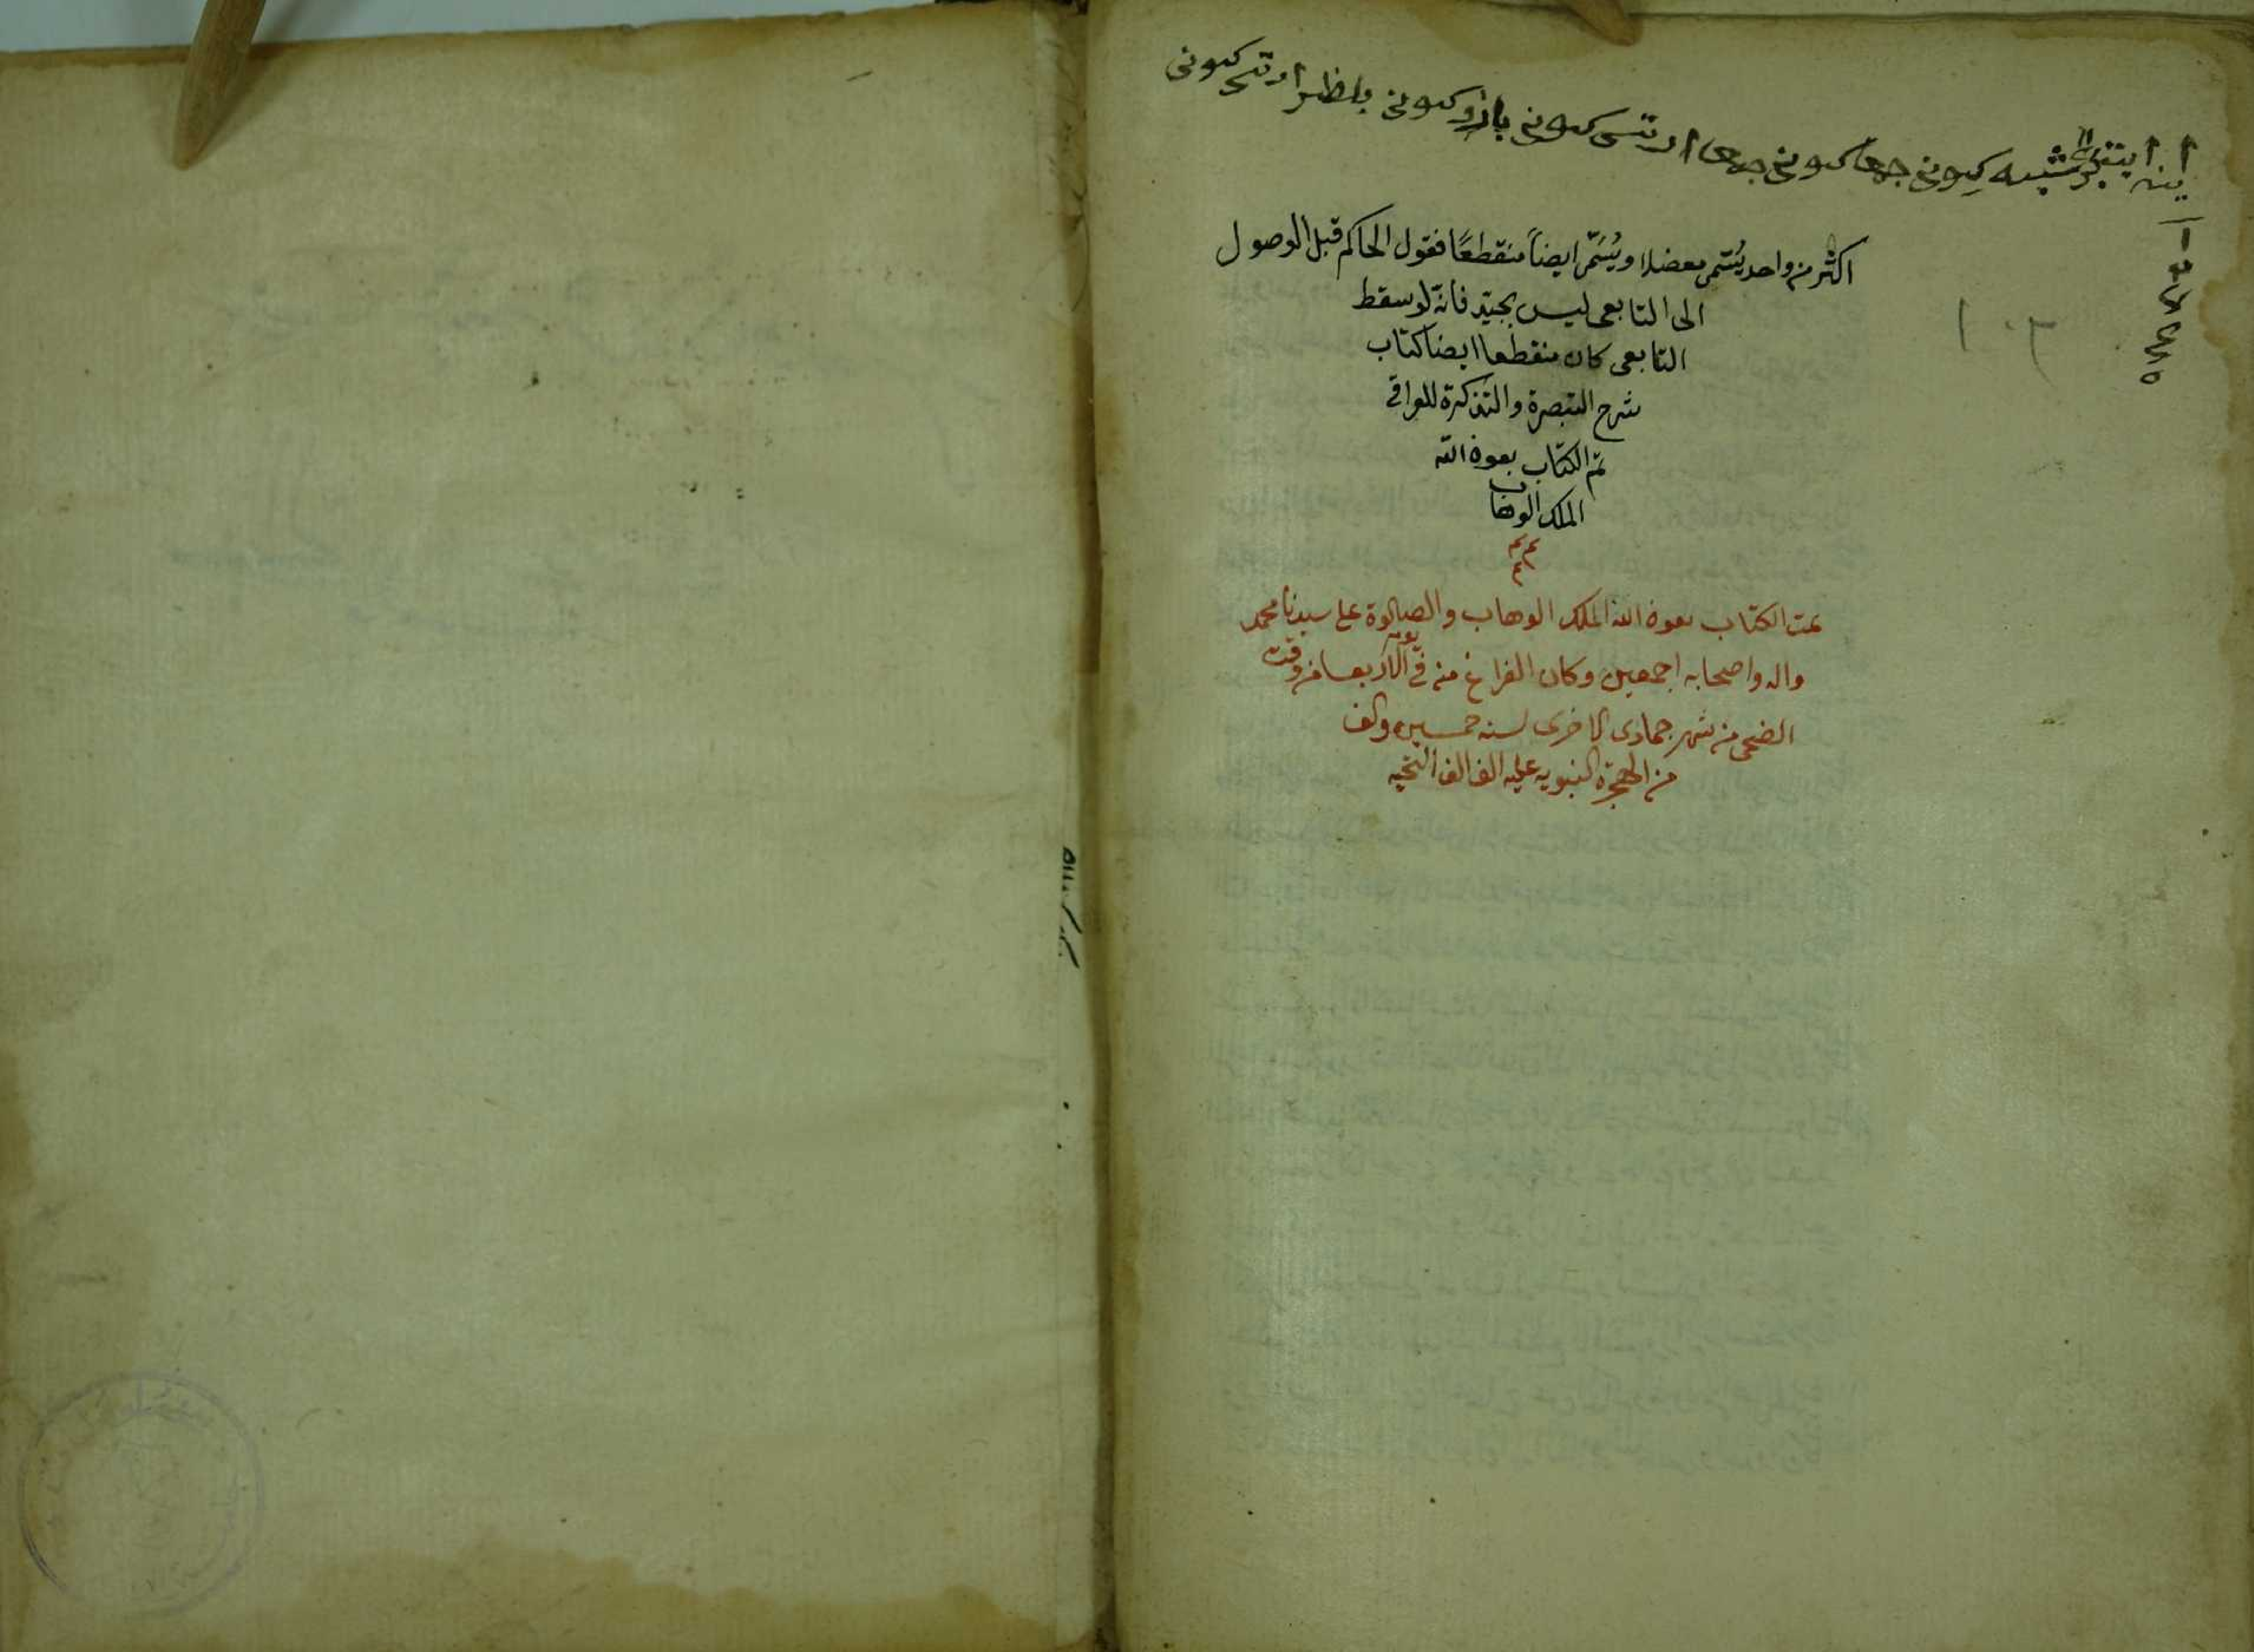 كونى جمعه كونى جمعه ارتسى كونى بازار كونى بازار ارتسى كونى
١٠٣
اكثر من واحد يُسَمّى معضلا ويُسَمّى ايضاً منقطعًا فقول الحاكم قبل الوصول
الى التابعى ليس بجيّد فانّه لو سقط
التابعى كان منقطعا ايضا كتاب
شرح التبصرة والتذكرة للعراقى
تمّ الكتاب بعون الله
الملك الوهاب
تمت الكتاب بعون الله الملك الوهاب والصلوة على سيدنا محمد
واله واصحابه اجمعين وكان الفراغ منه فى يوم الاربعا من وقت
الضحى من شهر جمادى الاخرى لسنه خمسين والف
من الهجرة النبويه عليه الف الف التحيه